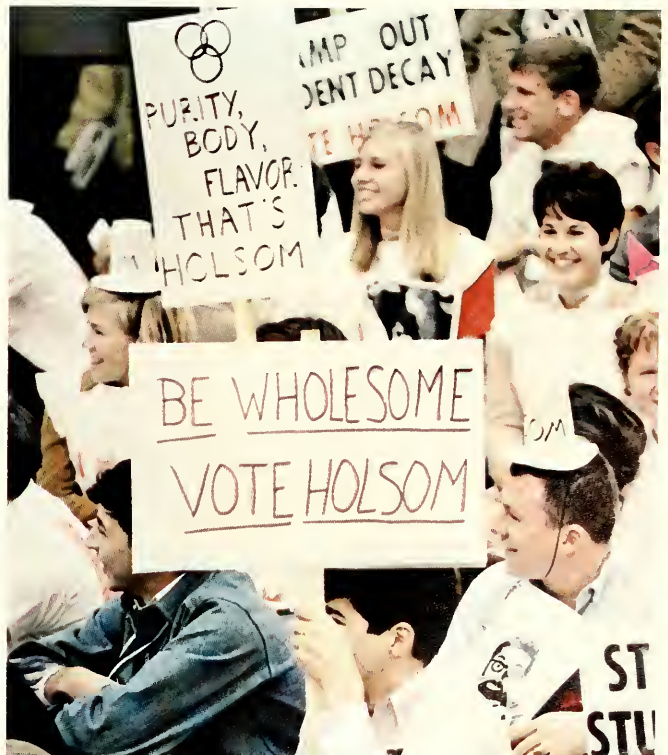 PURITY,
BODY,
FLAVOR.
THAT'S
HOLSOM
AMP OUT
DENT DECAY
TE HOLSOM
BE WHOLESOME
VOTE HOLSOM
OM
ST
STU